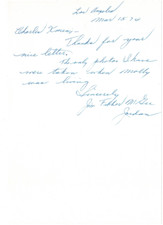 Los Angeles
Mar 15 74
Charles Kovin,
Thanks for your
nice letter,
these photos
were taken when Molly
was living
Sincerely
Jim Fibber McGee
Jordan